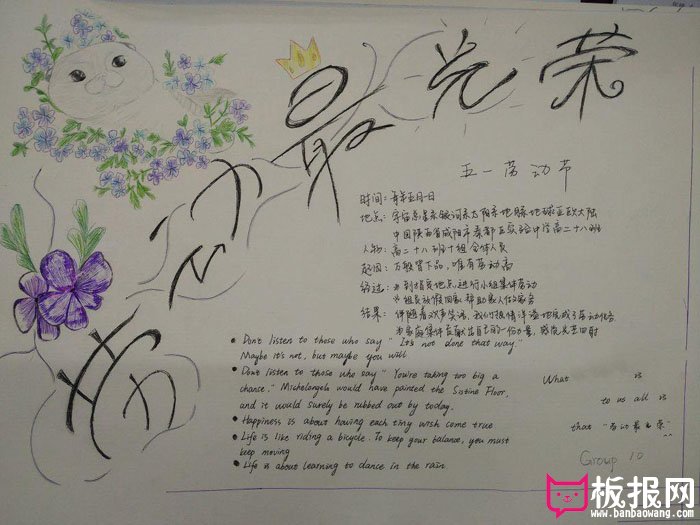 劳动最光荣
五一劳动节
时间：每年五月一日
地点：宇宙总星系银河系太阳系地球亚欧大陆
中国陕西省咸阳市秦都区实验中学高二十八班
人物：高二十八班十组全体人员
起因：万般皆下品，唯有劳动高
经过：※到指定地点进行小组集体劳动
※组长放假回家帮助家人做家务
结果：伴随着欢声笑语，我们热情洋溢地完成了劳动任务
※为家庭集体贡献出自己的一份力量
• Don't listen to those who say " It's not done that way."
Maybe it's not, but maybe you will
• Don't listen to those who say " You're taking too big a
chance." Michelangelo would have painted the Sistine Floor,
and it would surely be rubbed out by today.
• Happiness is about having each tiny wish come true
• Life is like riding a bicycle. To keep your balance, you must
keep moving
• Life is about learning to dance in the rain
What is
to us all is
that "劳动最光荣"
Group 10
板报网
www.banbaowang.com